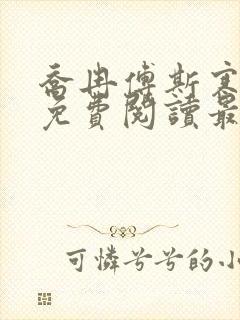 喬冉傅斯寒
免費閱讀最
可憐兮兮的小